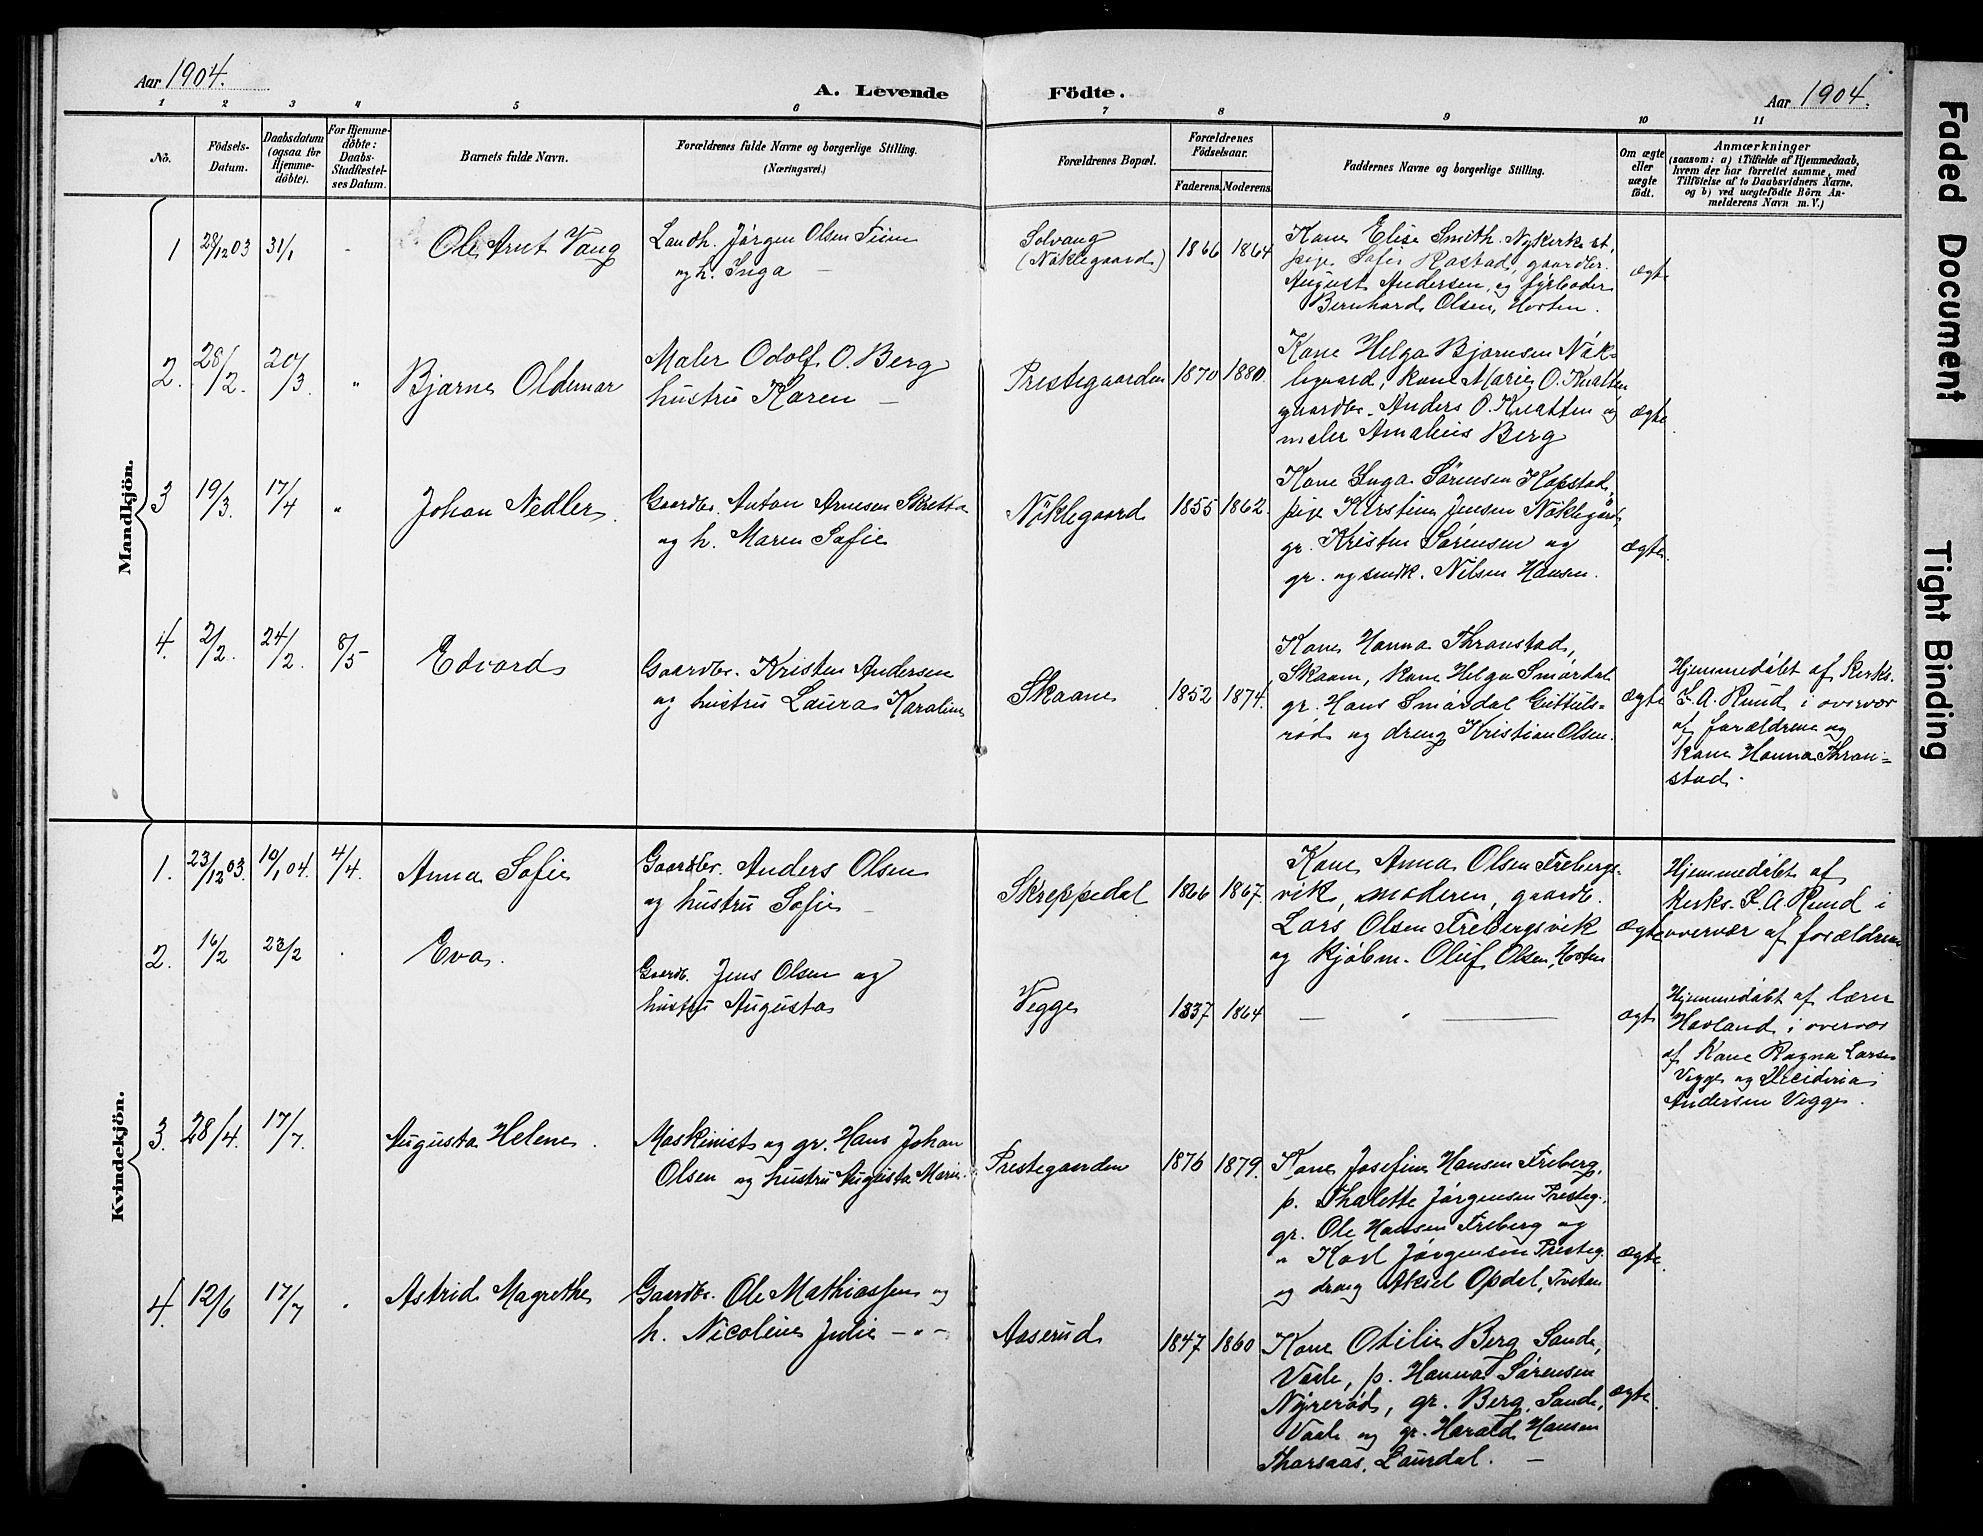 Aar 1904.
A. Levende Födte.
Aar 1904.
1 2 3 4 5 6 7 8 9 10 11
No.
Födsels-Datum.
Daabsdatum (ogsaa for Hjemme-döbte).
For Hjemme-döbte: Daabs-Stadfæstel-ses Datum.
Barnets fulde Navn.
Forældrenes fulde Navne og borgerlige Stilling.
(Næringsvei.)
Forældrenes Bopæl.
Forældrenes Födselsaar.
Faderens. Moderens.
Faddernes Navne og borgerlige Stilling.
Om ægte eller uægte födt.
Anmærkninger
(saasom: a) i Tilfælde af Hjemmedaab,
hvem der har forrettet samme, med
Tilföielse af to Daabsvidners Navne,
og b) ved uægtefödte Börn An-
melderens Navn m. V.)
Mandkjön.
1 28/12 03 31/1 - Ole Arnt Vang
Landh. Jørgen Olsen
og h. Inga -
Solvang
(Nöklegaard)
1866 1864
Kone Elise Smith. Nykirke st,
pige Sofie Rastad, gaardbr.
August Andersen, og fyrbøder
Bernhard Olsen, Horten.
ægte
2. 28/2. 20/3. " Bjarne Oldemar
Maler Odolf O. Berg
hustru Karen -
Prestegaarden 1870 1880.
Kone Helga Bjørnsen Nøk-
legaard, kone Marie O. Knatten
gaardbr. Anders O. Knatten og
maler Amalius Berg
ægte
3 19/3. 17/4 " Johan Nedler.
Gaardbr. Anton Arnesen Skretta
og h. Maren Sofie
Nöklegaard 1855 1862.
Kone Inga Sørensen Kopstad,
pige Kirstine Jensen Nøklegård
gr. Kristen Sørensen og
gr. og smdk. Nilsen Hansen.
ægte.
4. 2/2. 24/2. 8/5 Edvard
Gaardbr. Kristen Andersen
og hustru Laura Karoline
Skaane 1852 1874.
Kone Hanna Thranstad,
Skaane, kone Helga Smørdal
gr. Hans Smørdal Guttuls-
rød og dreng Kristian Olsen.
ægte
Hjemmedøbt af Kirks.
F. A. Rund i overvær
af forældrene og
Kone Hanna Thran=
stad.
Kvindekjön.
1. 23/12 03. 10/1 04. 4/4. Anna Sofie
Gaardbr. Anders Olsen
og hustru Sofie -
Skreppedal 1866 1867.
Kone Anna Olsen Frebergs-
vik, moderen, gaardb.
Lars Olsen Frebergsvik
og kjøbm. Oluf Olsen, Horten
ægte
Hjemmedøbt af
Kirks. F. A. Rund i
overvær af forældrene
2. 16/2 23/2 . Eva.
Gaardb. Jens Olsen og
hustru Augusta
Vegge 1837 1864
— " —
ægte
Hjemmedøbt af lærer
Havland i overvær
af Kone Ragna Larsen
Vegge og
Andersen Vegge.
3. 28/4. 17/7. Augusta Helene.
Maskinist og gr. Hans Johan
Olsen og hustru Augusta Marie.
Prestegaarden 1876 1879.
Kone Josefine Hansen Freberg,
p. Thalette Jørgensen Presteg.
gr. Ole Hansen Freberg og
" Karl Jørgensen Presteg.
og dreng Aksel Opdal, Tveten
ægte.
4. 12/6 17/7 . Astrid Magrethe
Gaardbr. Ole Mathiassen og
h. Nicoline Julie - " -
Aaserud 1847 1860
Kone Otilie Berg Sande,
Vaale, p. Hanna Sørensen
Nyrerød, gr. Berg, Sande,
Vaale og gr. Harald Hansen
Thorsaas, Laurdal. -
ægte.
Faded Document
Tight Binding